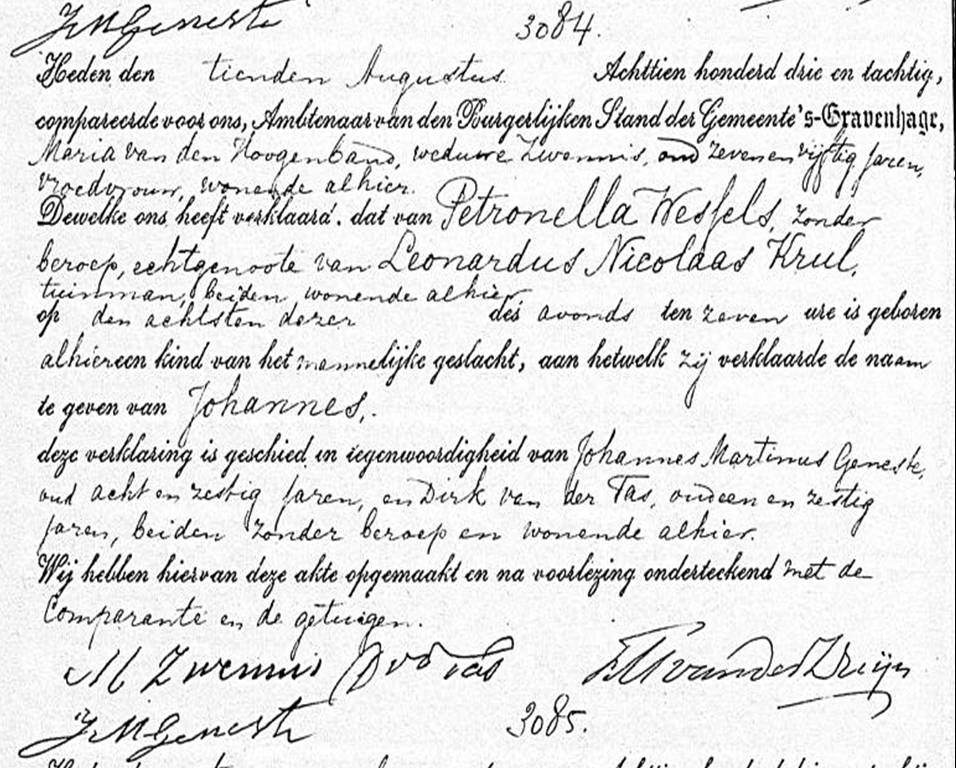 JMGeneste
3084.
Heden den tienden Augustus Achttien honderd drie en tachtig,
compareerde voor ons, Ambtenaar van den Burgerlijken Stand der Gemeente 's-Gravenhage,
Maria van den Hoogenband, weduwe Zwennis, oud zeven en vijftig jaren,
vroedvrouw, wonende alhier.
Dewelke ons heeft verklaard, dat van Petronella Wessels, zonder
beroep, echtgenoote van Leonardus Nicolaas Krul,
tuinman, beiden wonende alhier,
op den achtsten dezer des avonds ten zeven ure is geboren
alhier een kind van het mannelijke geslacht, aan hetwelk zij verklaarde de naam
te geven van Johannes.
deze verklaring is geschied in tegenwoordigheid van Johannes Martinus Geneste,
oud acht en zestig jaren, en Dirk van der Tas, oud een en zestig
jaren, beiden zonder beroep en wonende alhier.
Wij hebben hiervan deze akte opgemaakt en na voorlezing onderteekend met de
Comparante en de getuigen.
M Zwennis DvdTas
JMGeneste
3085.